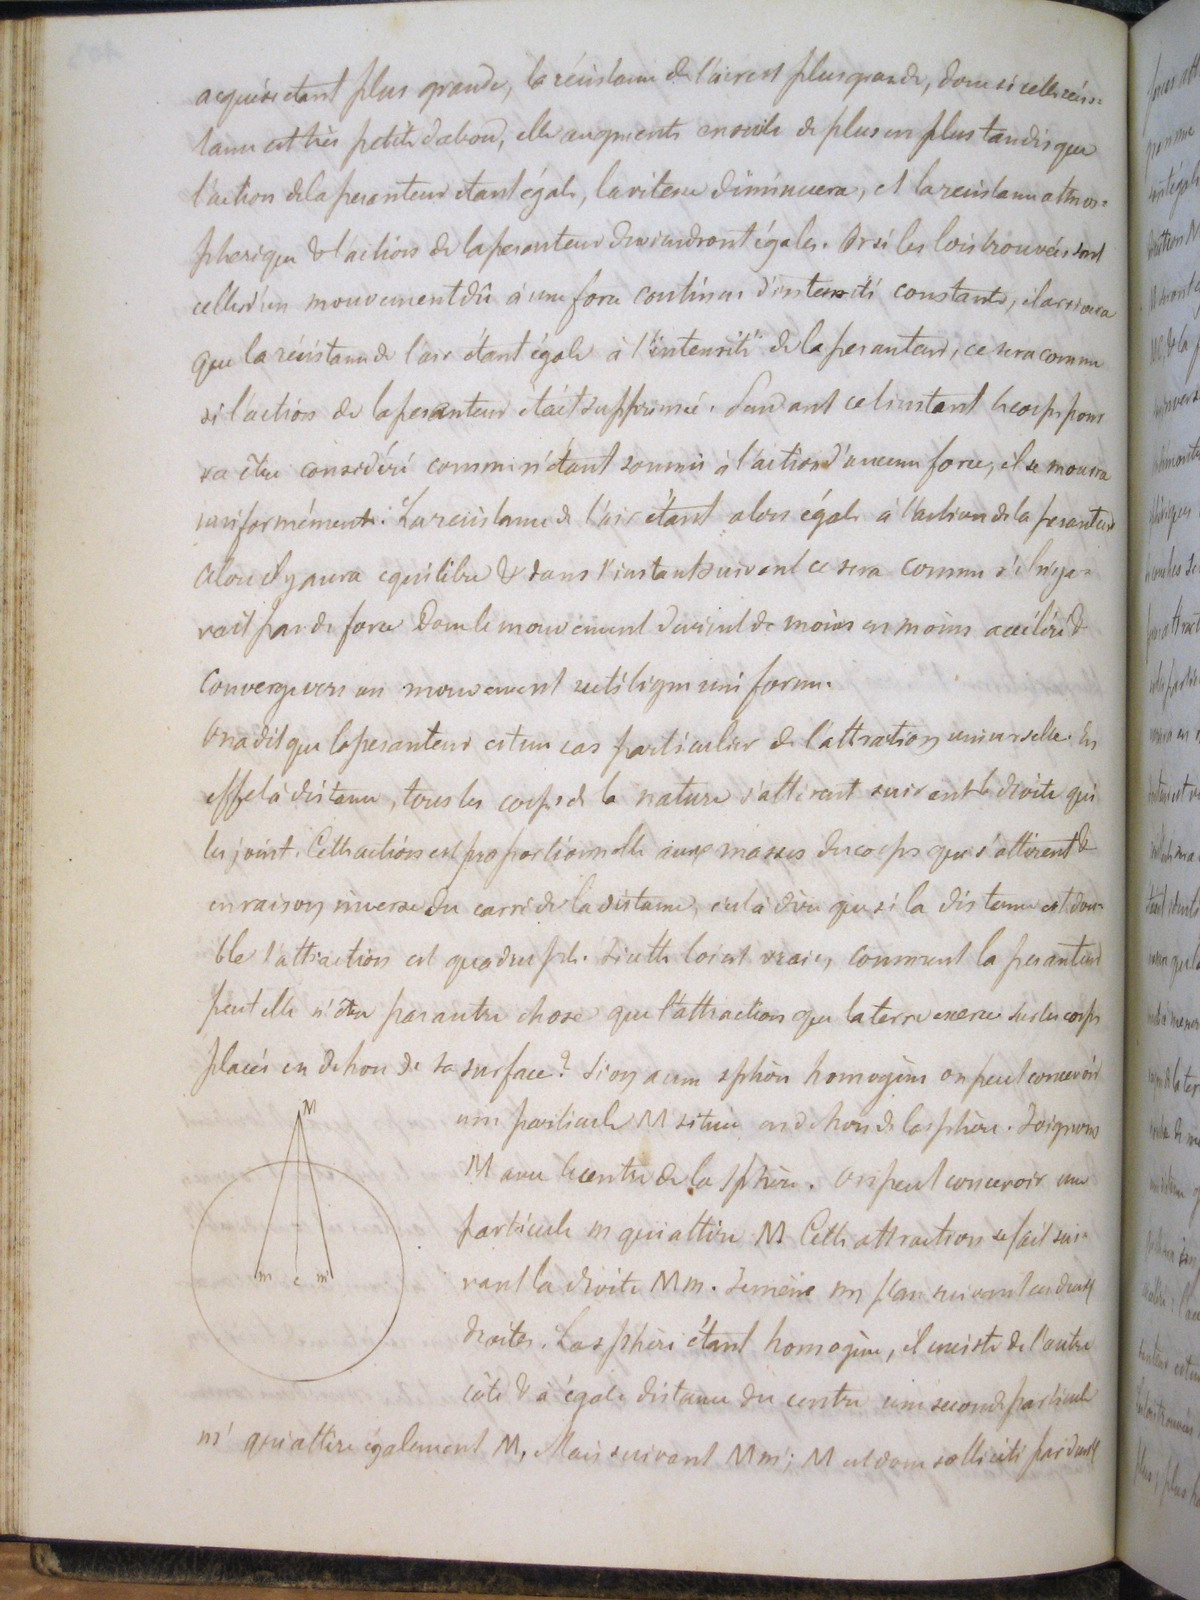 acquise étant plus grande, la résistance de l'air est plus grande, donc si cette résis=
tance est très petite d'abord, elle augmente ensuite de plus en plus tandis que
l'action de la pesanteur étant égale, la vitesse diminuera, et la résistance atmos=
pherique & l'action de la pesanteur deviendront égales. Or si les lois trouvées sont
celles d'un mouvement dû à une force continue d'intensité constante, il arrivera
que la résistance de l'air étant égale à l'intensité de la pesanteur, ce sera comme
si l'action de la pesanteur était supprimée. Pendant cet instant le corps pour
ra être considéré comme n'étant soumis à l'action d'aucune force, il se mouvra
uniformément. La résistance de l'air étant alors égale à l'action de la pesanteur
alors il y aura equilibre & dans l'instant suivant ce sera comme s'il n'ya=
vait pas de force Donc le mouvement devient de moins en moins accéléré &
converge vers un mouvement rectiligne uniforme.
On a dit que la pesanteur est un cas particulier de l'attraction universelle. En
effet à distance, tous les corps de la nature s'attirent suivant la droite qui
les joint. Cette action est proportionnelle aux masses des corps qui s'attirent &
en raison inverse du carré de la distance, c'est à dire que si la distance est dou=
ble l'attraction est quadruple. Si cette loi est vraie, comment la pesanteur
peut elle n'être pas autre chose que l'attraction que la terre exerce sur les corps
placés en dehors de sa surface? Si on a une sphère homogène on peut concevoir
une particule M située en dehors de la sphère. Joignons
M avec le centre de la sphère. On peut concevoir une
particule m qui attire M Cette attraction se fait sui=
vant la droite Mm. Je mène un plan suivant ces deux
droites. La sphère étant homogène, il existe de l'autre
côté & à égale distance du centre une seconde particule
m' qui attire également M, Mais suivant Mm'; M est donc sollicité par deux
M
m c m'